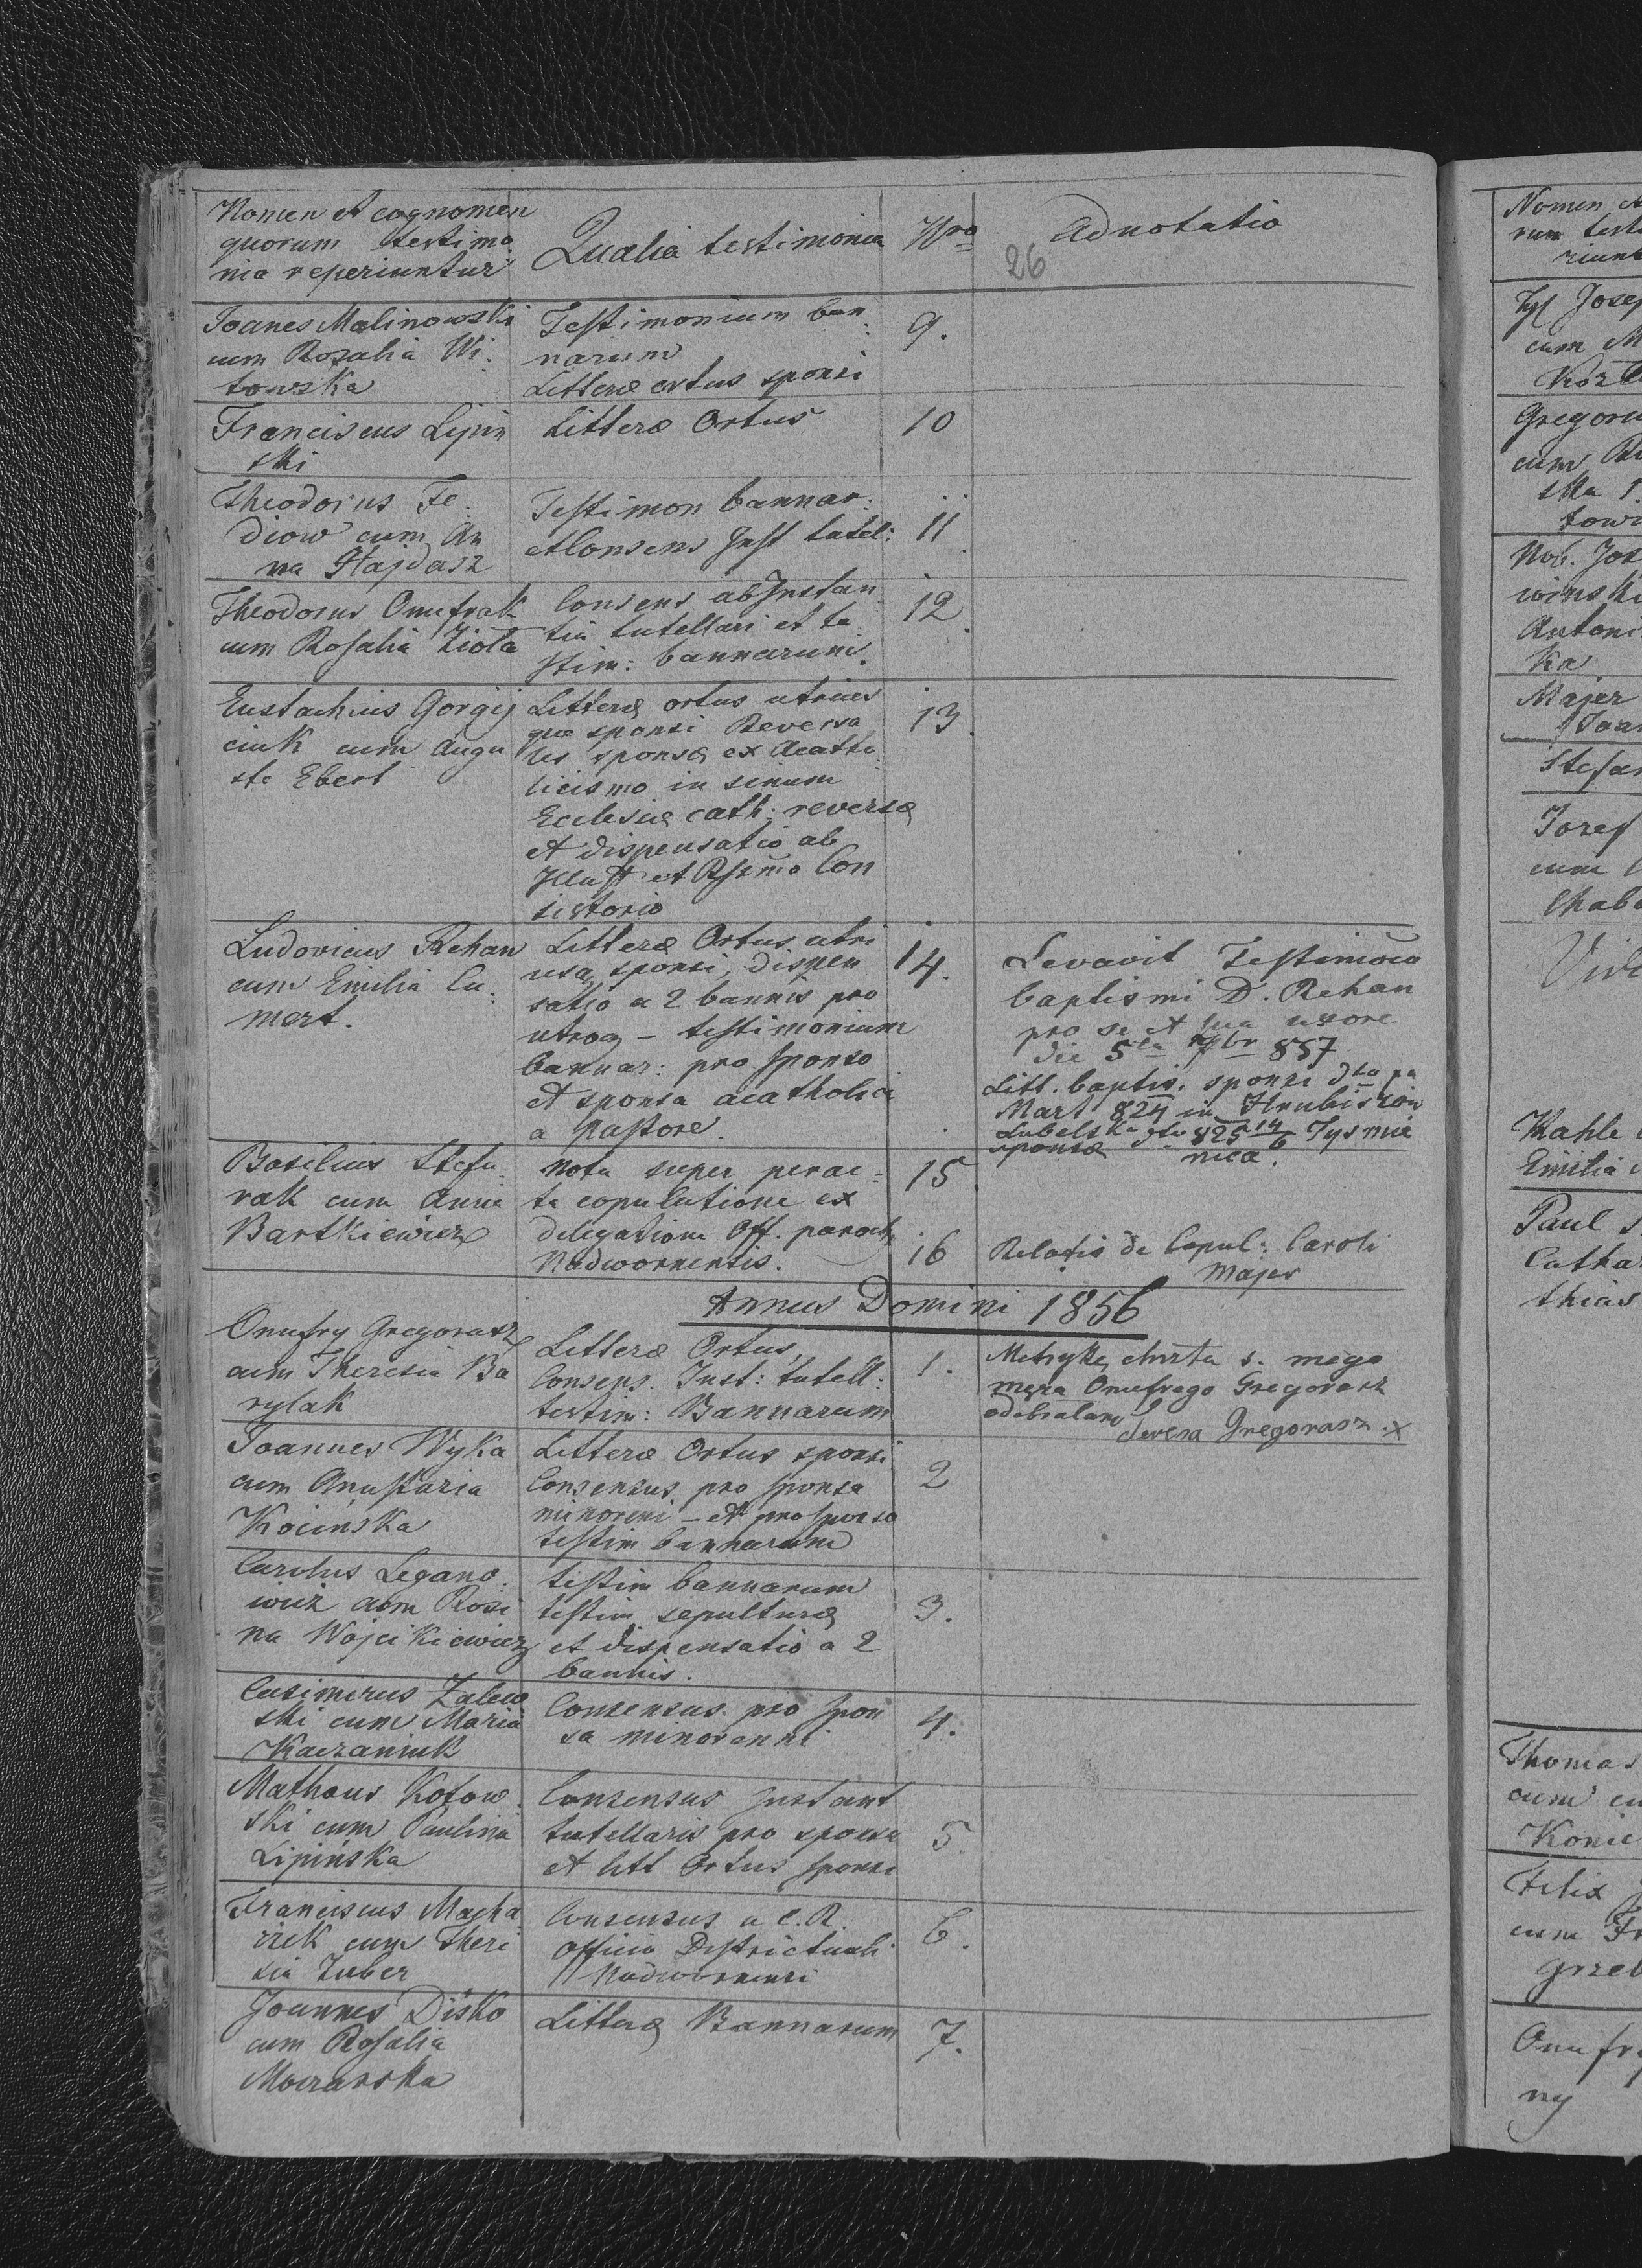 Nomen et cognomen
quorum testimo
nia reperiuntur
Qualia testimonia
Nro
Adnotatio
26
Joanes Malinowski
cum Rozalia Wi-
towska
Testimonium ban
narum
Litteræ ortus sponsi
9.
Franciscus Lipin
ski
Litteræ Ortus
10
Theodorus Fe-
diow cum An
na Hajdasz
Testimon bannar:
et Consens Inst tutel:
11
Theodorus Onufrak
cum Rosalia Zioła
Consens ab Instan
tia tutellari et te
stim: bannarum.
12
Eustachius Gorgij
ciuk cum Augu
sta Ebert
Litteræ ortus utrius
que sponsi Reversa
les sponsæ ex Acatho
licismo in sinum
Ecclesiæ cath: reversæ
et dispensatio ab
Illust et Rssmo Con
sistorio
13.
Ludovicus Rehan
cum Emilia Cu-
mert.
Litteræ Ortus utri
usq sponsi, dispen
satio a 2 bannis pro
utroq - testimonium
bannar: pro sponso
et sponsa acatholica
a Pastore
14.
Levavit Testimonia
baptismi D. Rehan
pro se et sua uxore
die 5ta 857
Litt. baptis. sponsi dto
Mart 824 in Hrubiszów
Lubelsk dto 825 14/6 Tysmie
sponsæ nica.
Basilius Stefu-
rak cum Anna
Bartkiewicz
Nota super perac-
ta copulatione ex
delegatione Off. paroch
Nadwornensis.
15.
16
Relatio de Copul: Caroli
Majer
Annus Domini 1856
Onufry Gregorasz
cum Theresia Ba
rylak
Litteræ Ortus,
Consens. Inst: tutell:
testim: Bannarum
1.
Metrykę chrztu s. mego
męża Onufrego Gregorasz
odebrałam
Teresa Gregorasz X
Joannes Wyka
cum Anastazia
Kocińska
Litteræ Ortus sponsi
Consensus pro sponsa
minoreni - et pro sponso
testim bannarum
2
Carolus Legano-
wicz cum Rosi
na Wojcikiewicz
testim bannarum
testim sepulturæ
et dispensatio a 2
bannis.
3.
Casimirus Zalew
ski cum Maria
Kaczaniuk
Consensus pro spon
sa minorenni
4.
Mathæus Kotow-
ski cum Paulina
Lipińska
Consensus Instant
tutellaris pro sponsa
et litt Ortus sponsi
5
Franciscus Macha
rzek cum There
sia Zuber
Consensus a C. R.
officio Districtuali
Nadwornensi
6.
Joannes Disko
cum Rosalia
Moczarska
Litteræ Bannarum
7.
Nomen et
rum testi
riunt
Josep
cum M
Kozł
Gregoriu
cum
ska
tow
Nob. Joz
winski
Antoni
ka
Majer
Joan
Stefan
Jozef
cum
Chab
Vide
Kahle
Emilia
Paul
Catha
thias
Thomas
cum
Konie
Felix
cum Fr
Grzel
Onufry
ny